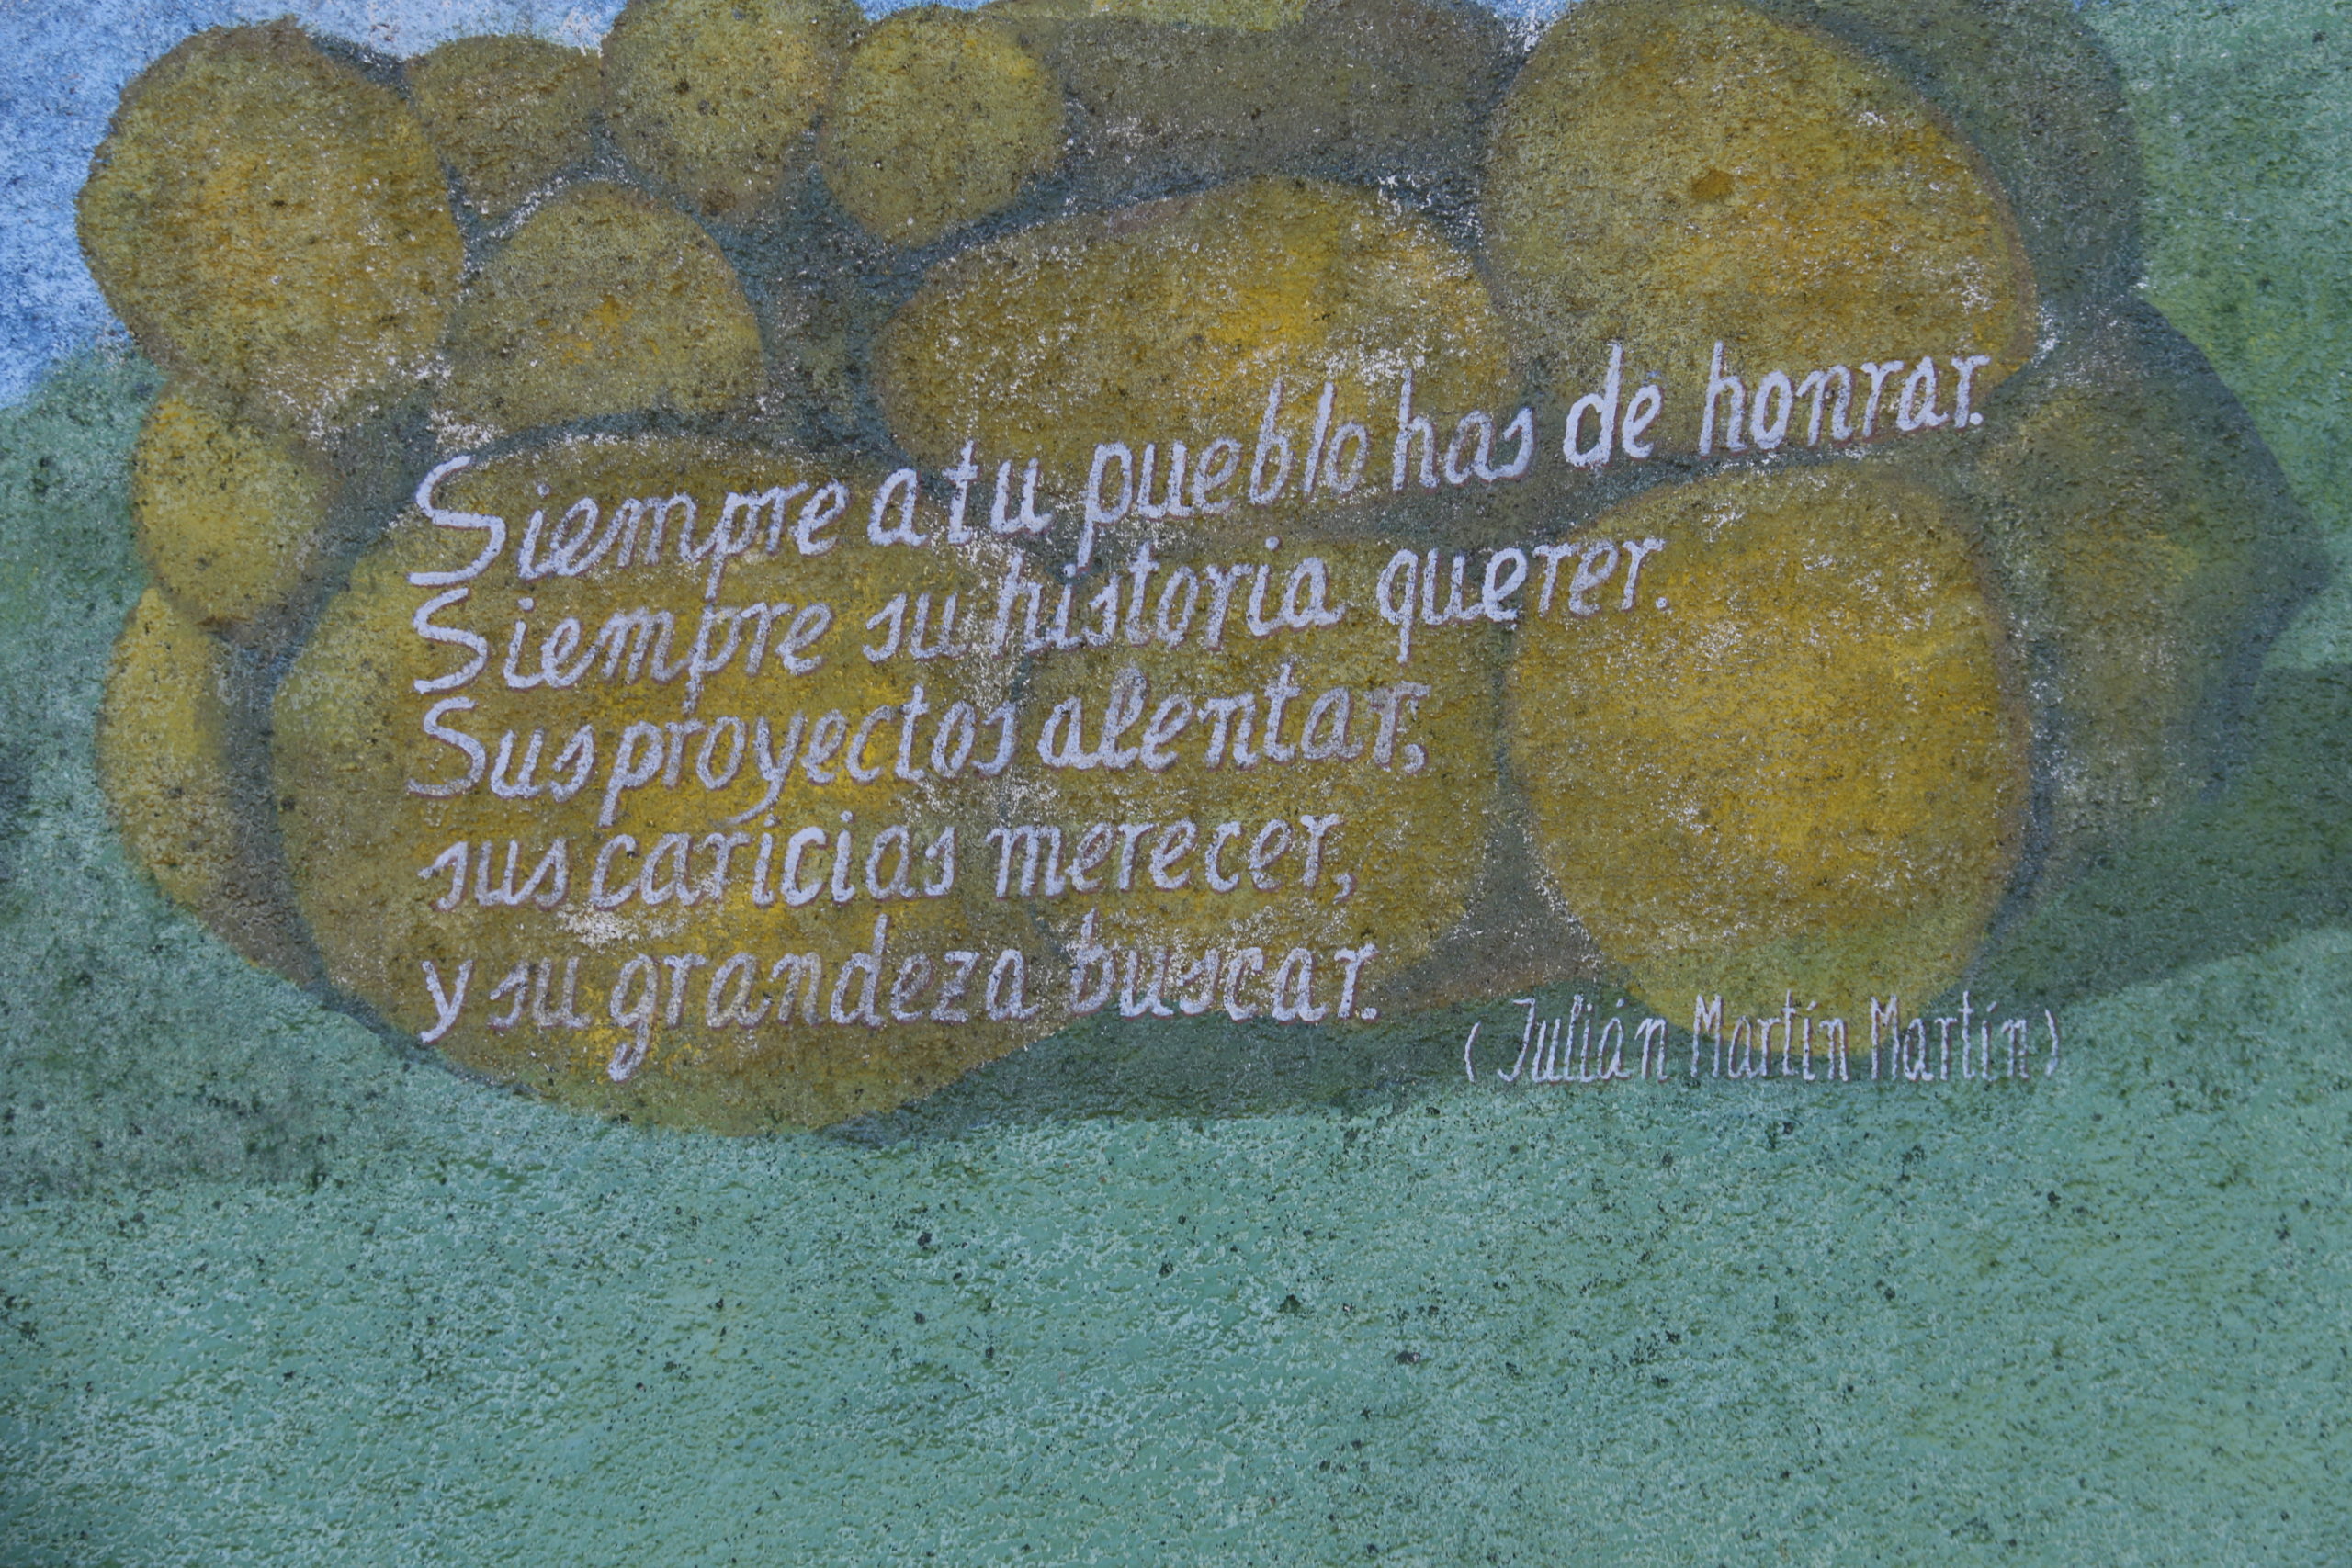 Siempre a tu pueblo has de honrar.
Siempre su historia querer.
Sus proyectos alentar,
sus caricias merecer,
y su grandeza buscar.
(Julián Martín Martín)